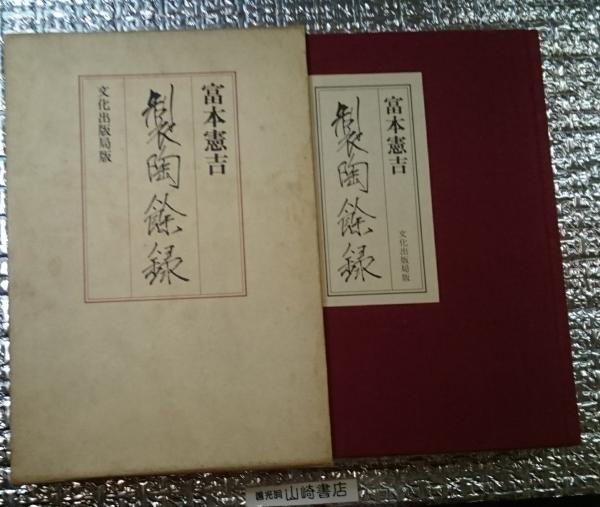 富本憲吉
製陶餘録
文化出版局版
富本憲吉
製陶餘録
文化出版局版
國光洞 山崎書店